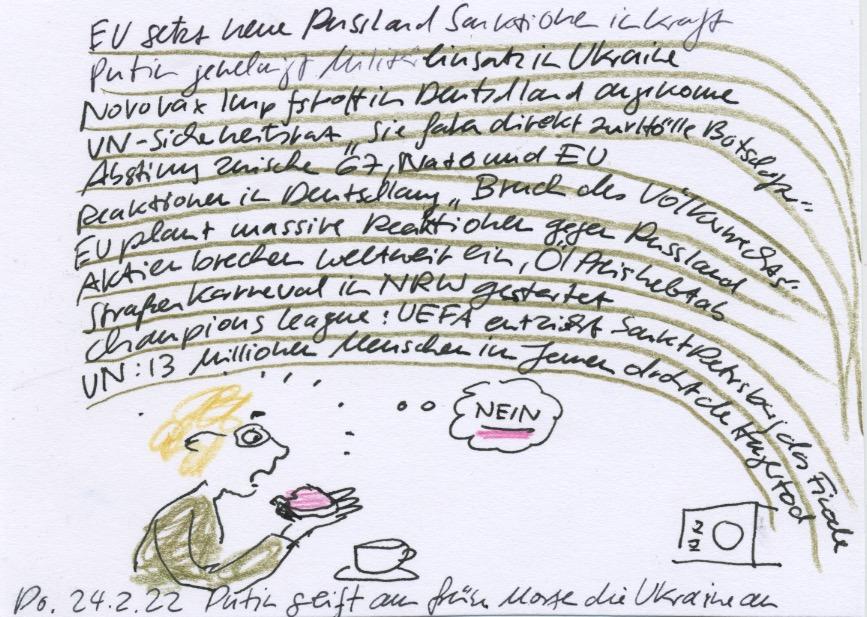 EU setzt neue Russland Sanktionen in kraft
Putin genehmigt Militäreinsatz in Ukraine
Novovax Impfstoff in Deutschland angekome
UN-Sicherheitsrat „Sie fahrn direkt zur Hölle Botschafter"
Abstimg zwische G7, Nato und EU
Reaktionen in Deutschlang „Bruch des Völkerrechts"
EU plant massive Reaktionen gegen Russland
Aktien brechen weltweit ein, Öl Preis hebt ab
Straßenkarneval in NRW gestartet
Champions League: UEFA entzieht Sankt Petersburg das Finale
UN: 13 Millionen Menschen in Jemen droht de Hungertod
NEIN
Do. 24.2.22 Putin greift am früen Morgen die Ukraine an